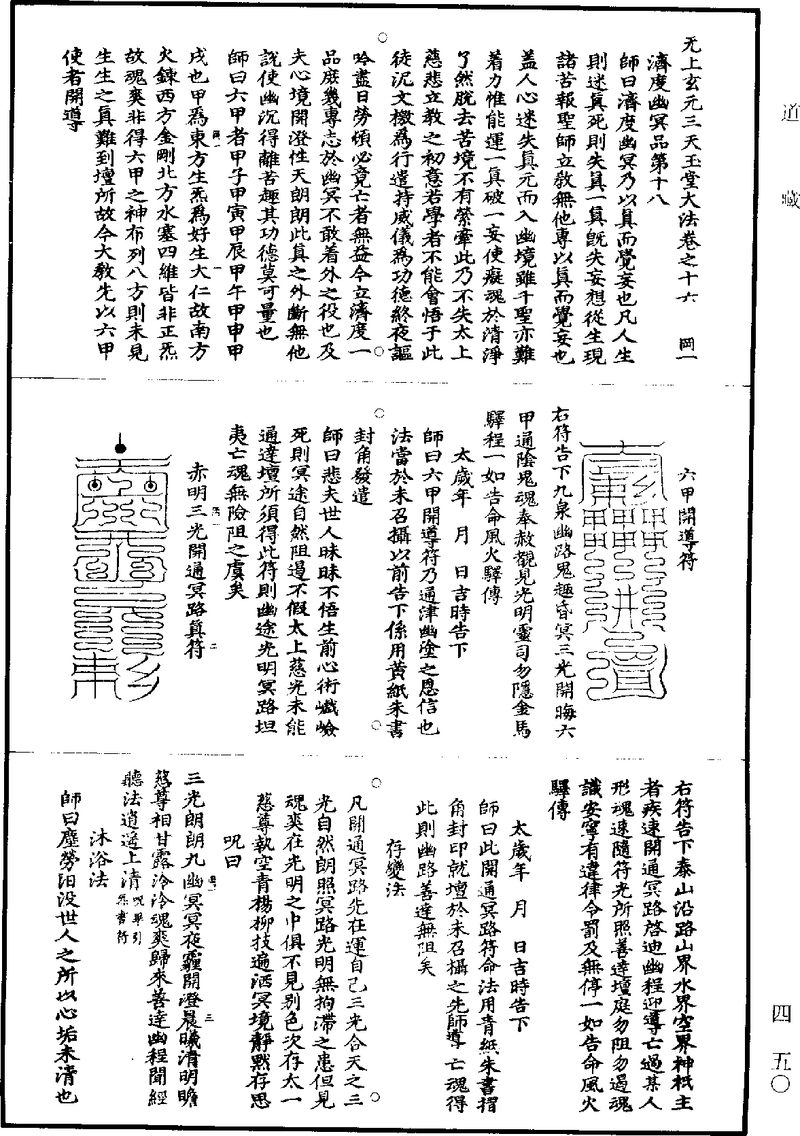 道藏
四五〇
无上玄元三天玉堂大法卷之十六 岡一
濟度幽冥品第十八
師曰濟度幽冥乃以真而覺妄也凡人生
則迷真死則失真一真既失妄想從生現
諸苦報聖師立教無他專以真而覺妄也
蓋人心迷失真元而入幽境雖千聖亦難
着力惟能運一真破一妄使癡魂於清淨
了然脫去苦境不有縈牽此乃不失太上
慈悲立教之初意若學者不能會悟于此
徒泥文檄為行遣持威儀為功德終夜謳
吟盡日勞頓必竟亡者無益今立濟度一
品庶幾專志於幽冥不敢着外之役也及
夫心境開澄性天朗朗此真之外斷無他
說使幽沉得離苦趣其功德莫可量也
師曰六甲者甲子甲寅甲辰甲午甲申甲
戌也甲為東方生炁為好生大仁故南方
火鍊西方金剛北方水塞四維皆非正炁
故魂爽非得六甲之神布列八方則未見
生生之真難到壇所故今大教先以六甲
使者開導
六甲開導符
右符告下九泉幽路鬼趣昏冥三光開晦六
甲通陰鬼魂奉赦覩見光明靈司勿隱金馬
驛程一如告命風火驛傳
太歲年 月 日吉時告下
師曰六甲開導符乃通津幽塗之恩信也
法當於未召攝以前告下係用黃紙朱書
封角發遣
師曰悲夫世人昧昧不悟生前心術巇嶮
死則冥途自然阻邊不假太上慈光未能
通達壇所須得此符則幽途光明冥路坦
夷亡魂無險阻之虞矣
赤明三光開通冥路真符
右符告下泰山沿路山界水界空界神祇主
者疾速開通冥路啓迪幽程迎導亡過某人
形魂速隨符光所照善達壇庭勿阻勿遏魂
識安寧有違律令罰及無停一如告命風火
驛傳
太歲年 月 日吉時告下
師曰此開通冥路符命法用青紙朱書摺
角封印就壇於未召攝之先師導亡魂得
此則幽路善達無阻矣
存變法
凡開通冥路先在運自己三光合天之三
光自然朗照冥路光明無拘滯之患但見
魂爽在光明之中俱不見別色次存太一
慈尊執空青楊柳枝遍洒冥境靜默存思
呪曰
三光朗朗九幽冥冥夜靇開澄晨曦清明瞻
慈尊相甘露泠泠魂爽歸來善達幽程聞經
聽法逍遙上清呪畢引炁書符
沐浴法
師曰塵勞汩沒世人之所以心垢未清也